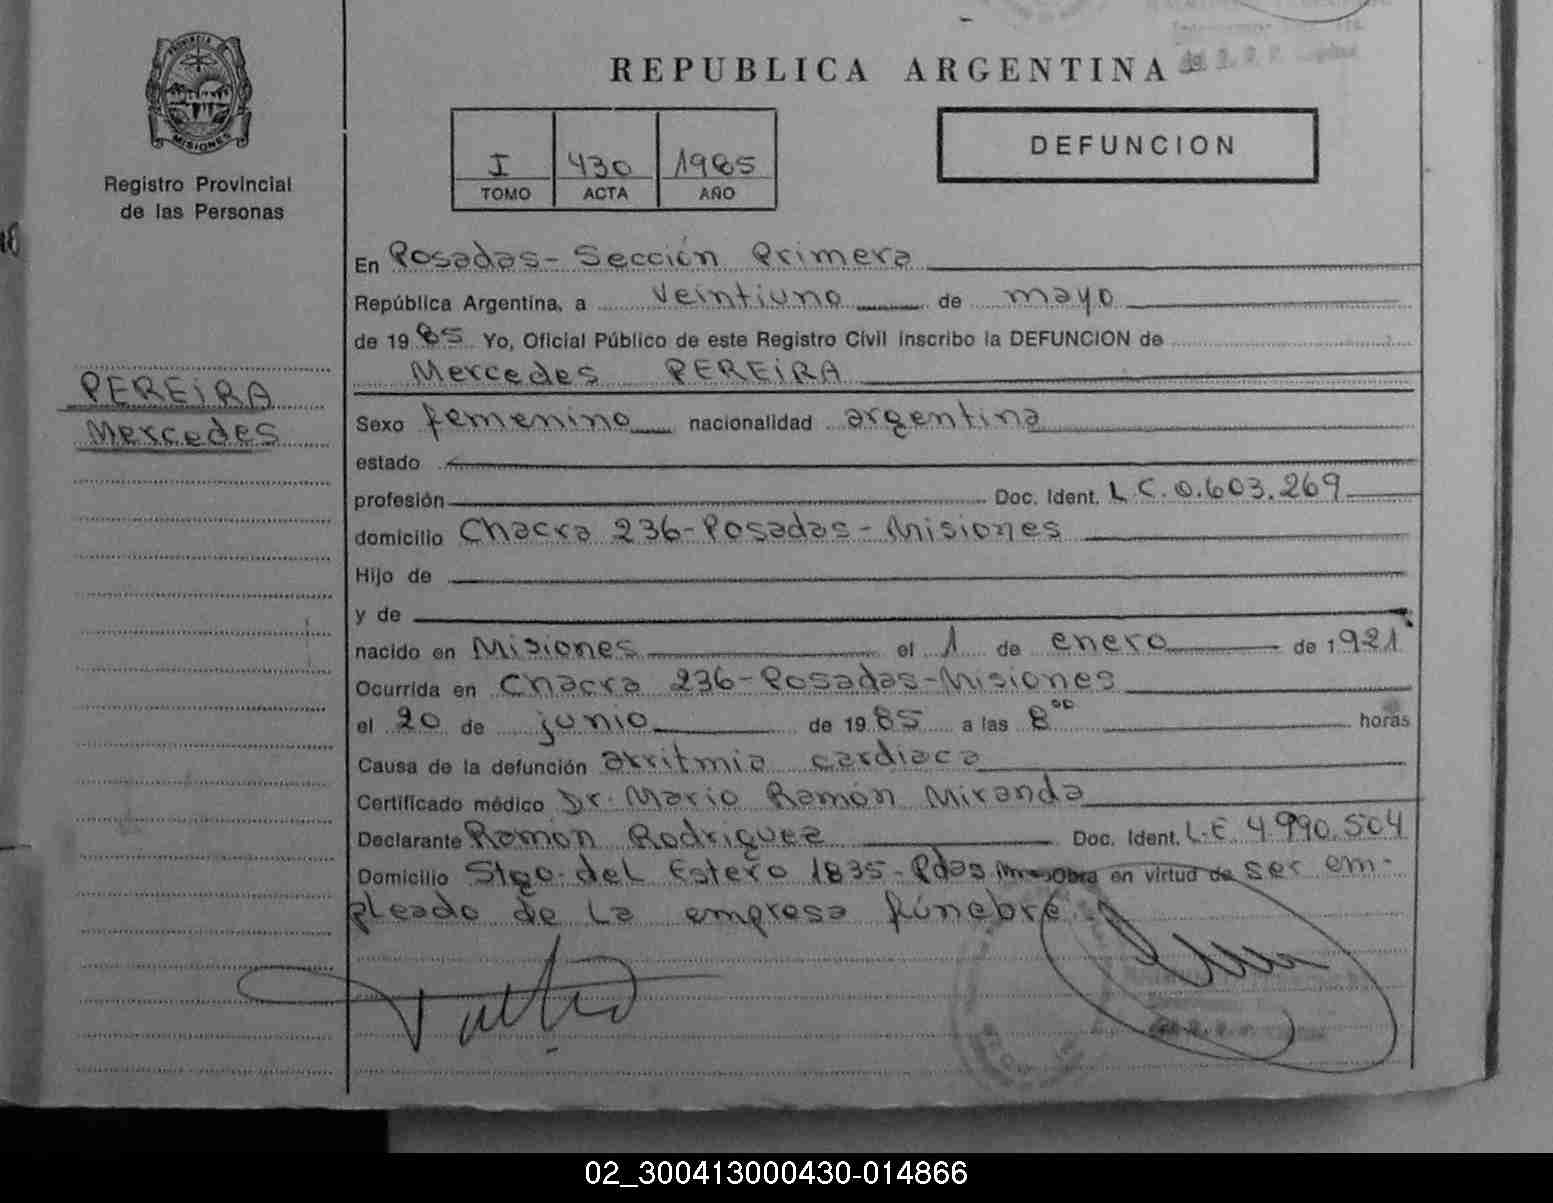 PROVINCIA DE
MISIONES
Registro Provincial
de las Personas
REPUBLICA ARGENTINA
I 430 1985
TOMO ACTA AÑO
DEFUNCION
En Posadas - Sección Primera
República Argentina, a veintiuno de mayo
de 1985 Yo, Oficial Público de este Registro Civil inscribo la DEFUNCION de
Mercedes PEREIRA
PEREIRA
Mercedes
Sexo femenino nacionalidad argentina
estado
profesión Doc. Ident. L.C. 0.603.269
domicilio Chacra 236-Posadas-Misiones
Hijo de
y de
nacido en Misiones el 1 de enero de 1921
Ocurrida en Chacra 236-Posadas-Misiones
el 20 de junio de 1985 a las 8⁰⁰ horas
Causa de la defunción arritmia cardiaca
Certificado médico Dr. Mario Ramón Miranda
Declarante Ramón Rodriguez Doc. Ident. L.E. 4.990.504
Domicilio Stgo. del Estero 1835-Pdas Obra en virtud de ser em-
pleado de la empresa fúnebre.
02_300413000430-014866